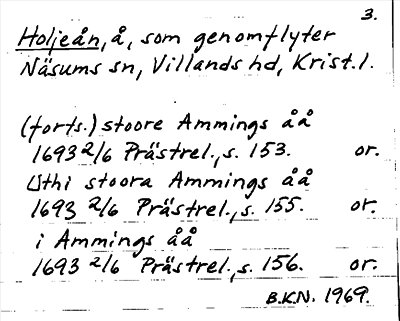 3.
Holjeån, å, som genomflyter
Näsums sn, Villands hd, Krist. l.
(forts.) stoore Ammings åå
1693 2/6 Prästrel., s. 153. or.
Uthi stoora Ammings åå
1693 2/6 Prästrel., s. 155. or.
i Ammings åå
1693 2/6 Prästrel., s. 156. or.
B.K.N. 1969.